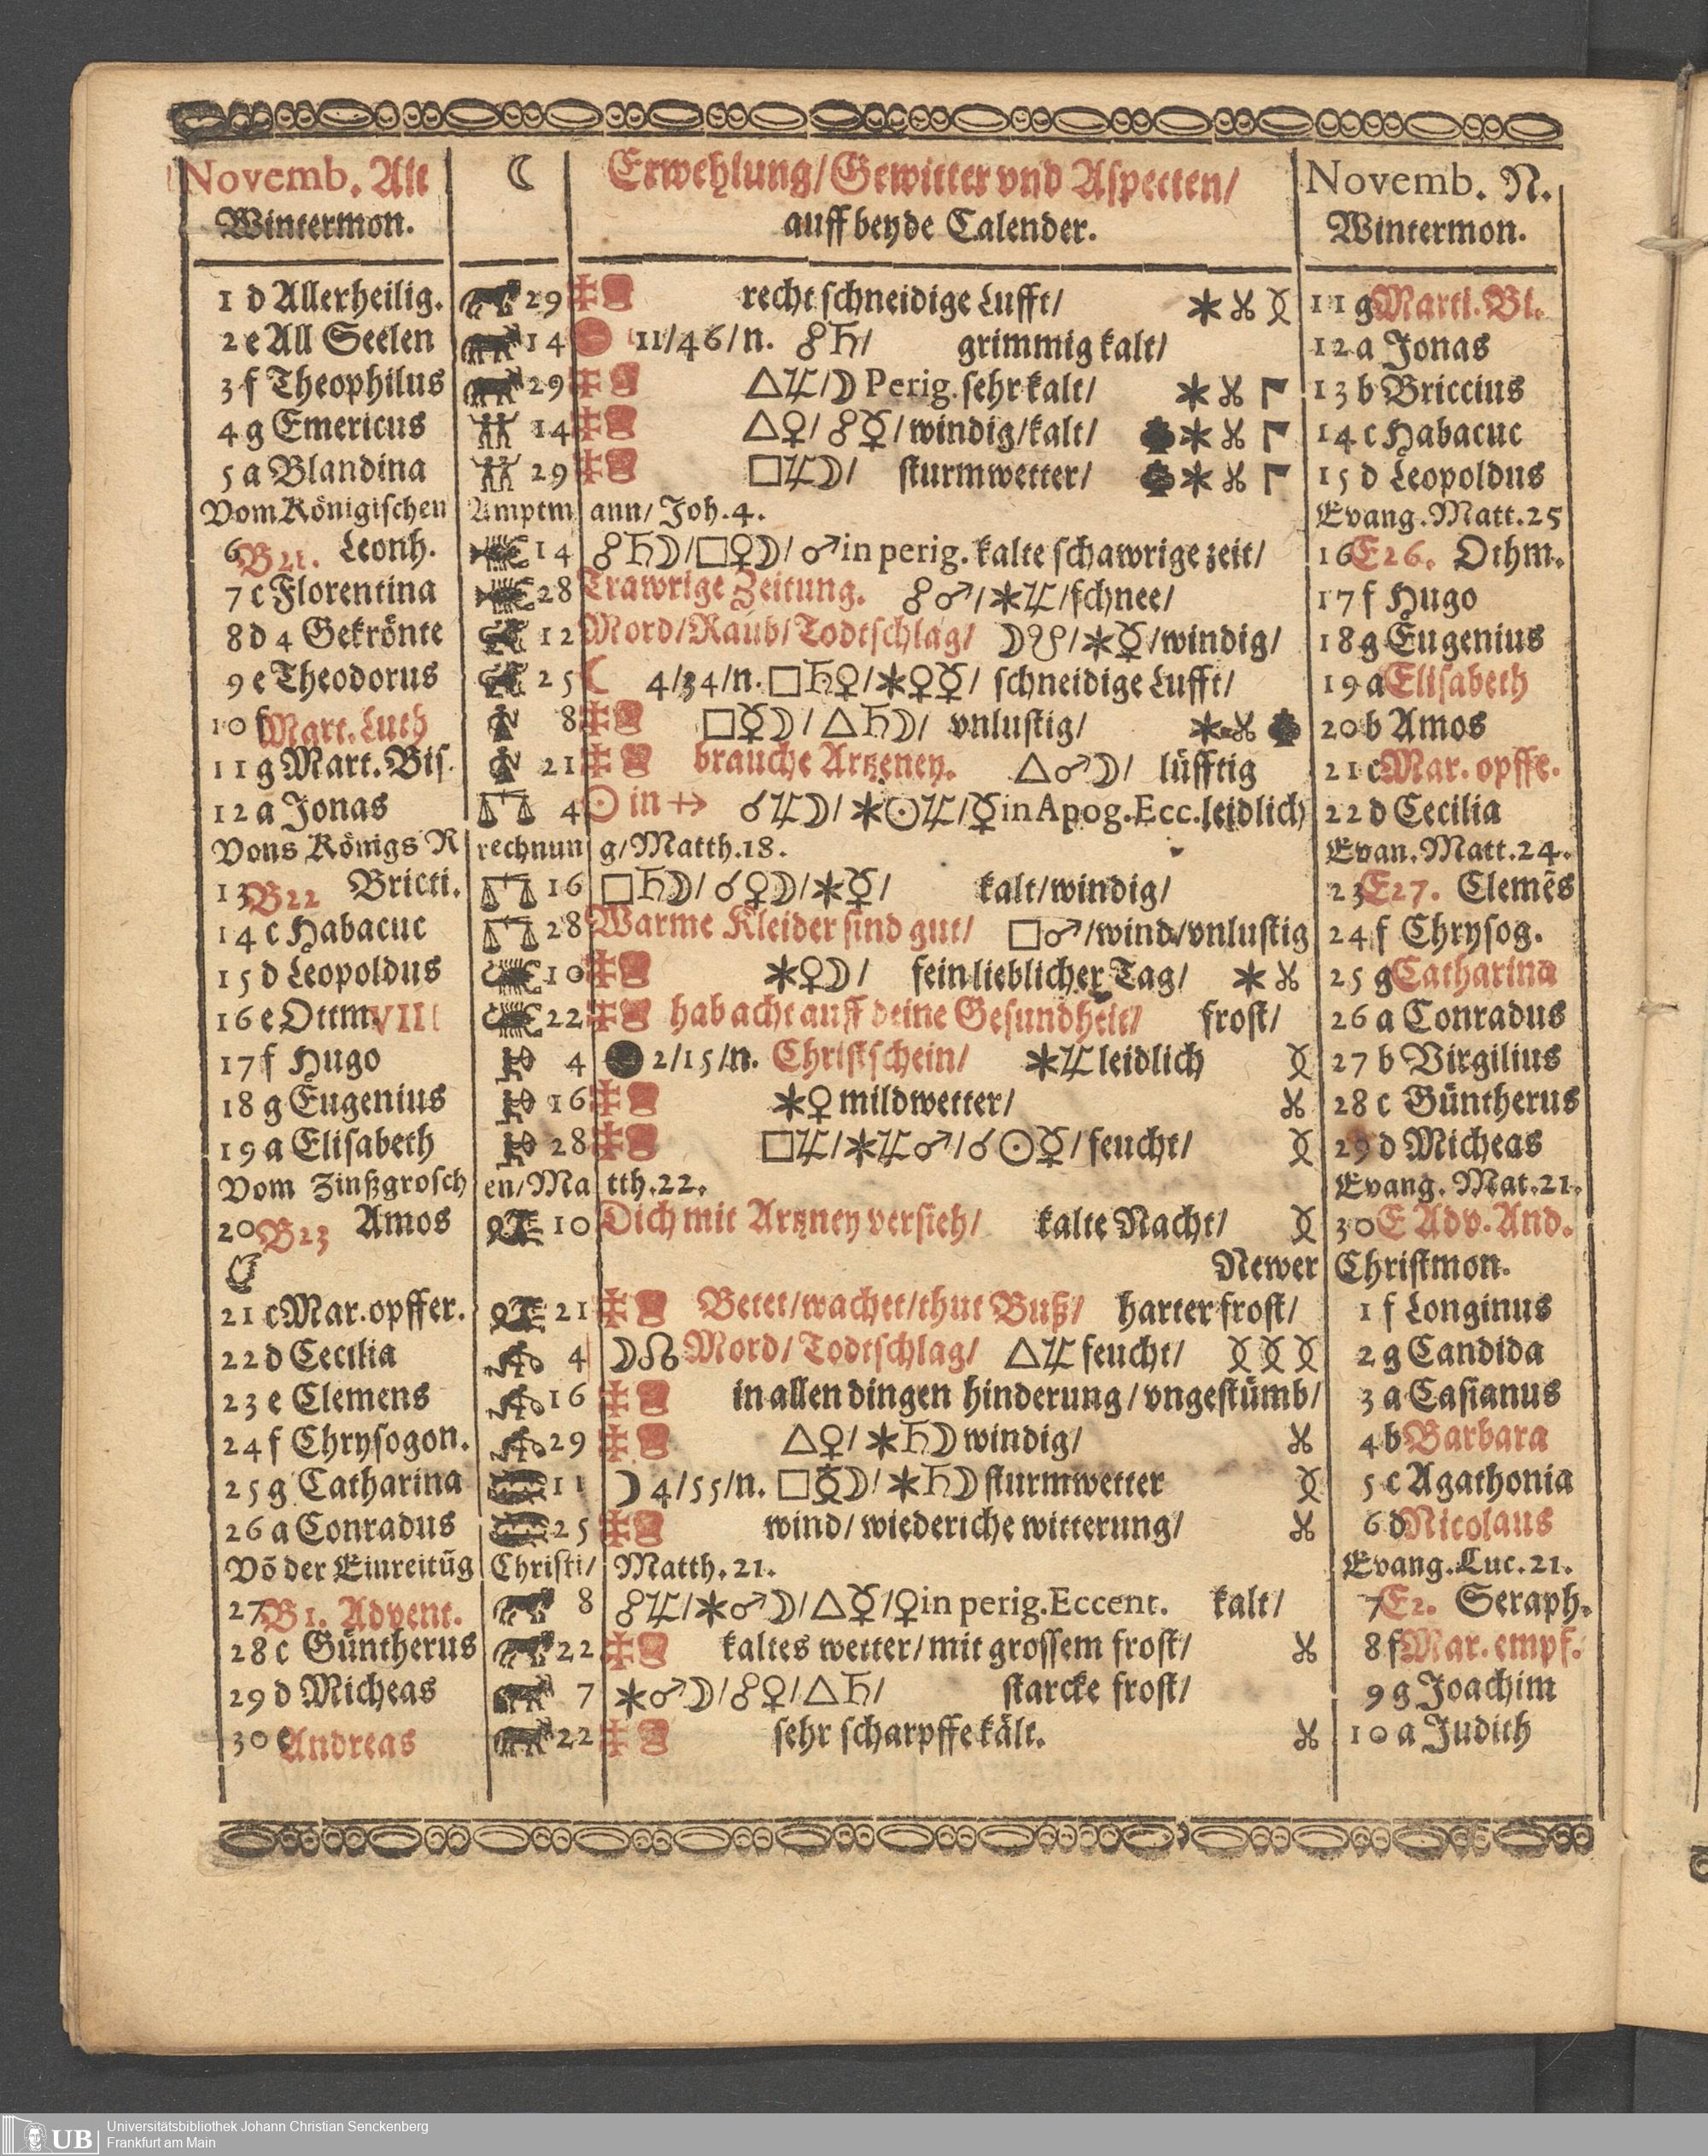 Novemb. Alt ☾ Erwehlung/Gewitter vnd Aspecten/ Novemb. N.
Wintermon. auff beyde Calender. Wintermon.
1 d Allerheilig. 29 recht schneidige Lufft/ 11 g Marti. Bi.
2 e All Seelen 14 11/46/n. ☍♄/ grimmig kalt/ 12 a Jonas
3 f Theophilus 29 △♃/☽ Perig. sehr kalt/ 13 b Briccius
4 g Emericus 14 △♀/☍☿/windig/kalt/ 14 c Habacuc
5 a Blandina 29 □♃☽/ sturmwetter/ 15 d Leopoldus
Vom Königischen Amptmann/ Joh.4. Evang.Matt.25
6 B21. Leonh. 14 ☍♄☽/□♀☽/ ♂in perig. kalte schawrige zeit/ 16 E26. Othm.
7 c Florentina 28 Trawrige Zeitung. ☍♂/✶♃/schnee/ 17 f Hugo
8 d 4 Gekrönte 12 Mord/Raub/Todtschlag/ ☽☋/✶☿/windig/ 18 g Eugenius
9 e Theodorus 25 ☾ 4/34/n. □♄♀/✶♀☿/ schneidige Lufft/ 19 a Elisabeth
10 f Mart. Luth 8 □☿☽/ △♄☽/ vnlustig/ 20 b Amos
11 g Mart. Bis. 21 brauche Artzeney. △♂☽/ lüfftig 21 c Mar. opffe.
12 a Jonas 4 ☉ in ♐ ☌♃☽/✶☉♃/☿in Apog. Ecc. leidlich 22 d Cecilia
Vons Königs Rrechnung/Matth.18. Evan.Matt.24.
13 B22 Bricti. 16 □♄☽/ ☌♀☽/✶☿/ kalt/windig/ 23 E27. Clemēs
14 c Habacuc 28 Warme Kleider sind gut/ □♂/wind/vnlustig 24 f Chrysog.
15 d Leopoldus 10 ✶♀☽/ fein lieblicher Tag/ 25 g Catharina
16 e Ottm. VII 22 hab acht auff deine Gesundheit/ frost/ 26 a Conradus
17 f Hugo 4 2/15/n. Christschein/ ✶♃ leidlich 27 b Virgilius
18 g Eugenius 16 ✶♀ mildwetter/ 28 c Güntherus
19 a Elisabeth 28 □♃/✶♃♂/☌☉☿/feucht/ 29 d Micheas
Vom Zinßgroschen/Matth.22. Evang. Mat.21.
20 B23 Amos 10 Dich mit Artzney versieh/ kalte Nacht/ 30 E Adv. And.
Newer Christmon.
21 c Mar.opffer. 21 Betet/wachet/thut Buß/ harter frost/ 1 f Longinus
22 d Cecilia 4 ☽☊ Mord/ Todtschlag/ △♃ feucht/ 2 g Candida
23 e Clemens 16 in allen dingen hinderung/vngestümb/ 3 a Casianus
24 f Chrysogon. 29 △♀/ ✶♄☽ windig/ 4 b Barbara
25 g Catharina 11 ☽ 4/55/n. □☿☽/ ✶♄☽ sturmwetter 5 c Agathonia
26 a Conradus 25 wind/ wiederiche witterung/ 6 d Nicolaus
Vō der Einreitūg Christi/ Matth. 21. Evang.Luc.21.
27 B 1. Advent. 8 ☍♃/✶♂☽/△☿/♀in perig. Eccent. kalt/ 7 E2. Seraph.
28 c Güntherus 22 kaltes wetter/mit grossem frost/ 8 f Mar. empf.
29 d Micheas 7 ✶♂☽/☍♀/△♄/ starcke frost/ 9 g Joachim
30 e Andreas 22 sehr scharpffe kält. 10 a Judith
UB Universitätsbibliothek Johann Christian Senckenberg
Frankfurt am Main